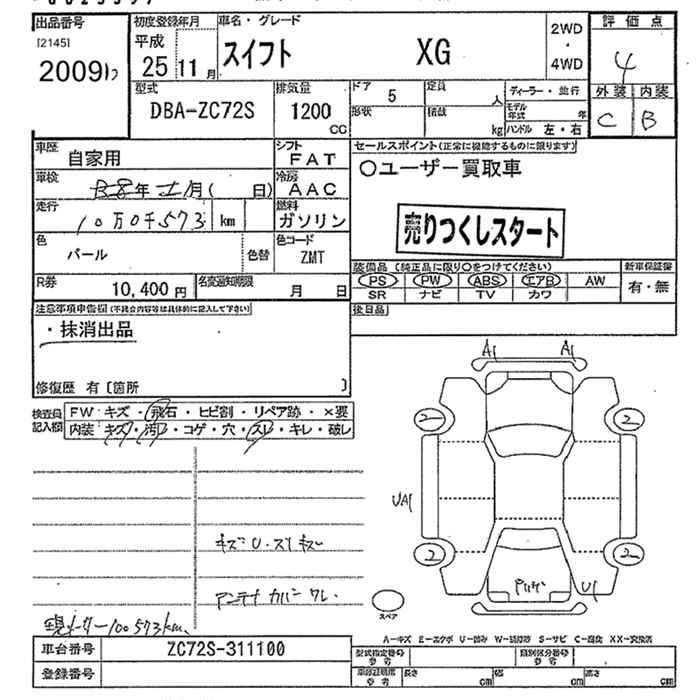 出品番号 初度登録年月 車名・グレード 2WD・4WD 評価点
[2145]
20091 平成25年11月 スイフト XG 4
型式 排気量 ドア 定員 ディーラー・並行 外装 内装
DBA-ZC72S 1200cc 5 人 モデル年式 年 C B
形状 積載 kg ハンドル 左・右
車歴 自家用 シフト FAT セールスポイント(正常に機能するものに限ります)
車検 年 月( 日) 冷房 AAC ○ユーザー買取車
走行 10万0千573 km 燃料 ガソリン
売りつくしスタート
色 パール 色替 色コード ZMT
装備品(純正品に限り○をつけてください) 新車保証書
R券 10,400円 名変通知期限 月 日
PS PW ABS エアB AW 有・無
SR ナビ TV カワ
注意事項申告欄(不具合内容等は具体的に記入して下さい) 後日品
・抹消出品
修復歴 有[箇所 ]
検査員記入欄 FW:キズ・飛石・ヒビ割・リペア跡・×要
内装:キズ・汚レ・コゲ・穴・スレ・キレ・破レ
A1 A1
2 2
UA1
2 2
U1
スペア
アンテナカバーワレ
現メーター100573km
A-キズ E-エクボ U-凹み W-補修跡 S-サビ C-腐食 XX-交換済
車台番号 ZC72S-311100
登録番号
型式指定番号 参考 類別区分番号 参考
車庫証明用 参考 長さ cm 幅 cm 高さ cm